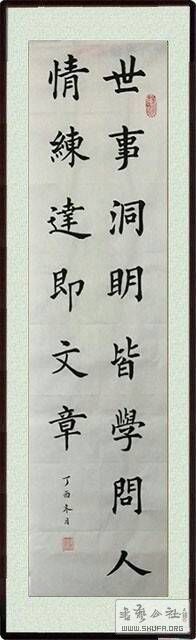 世事洞明皆學問人
情練達即文章
丁酉冬月
書藝公社
WWW.SHUFA.ORG